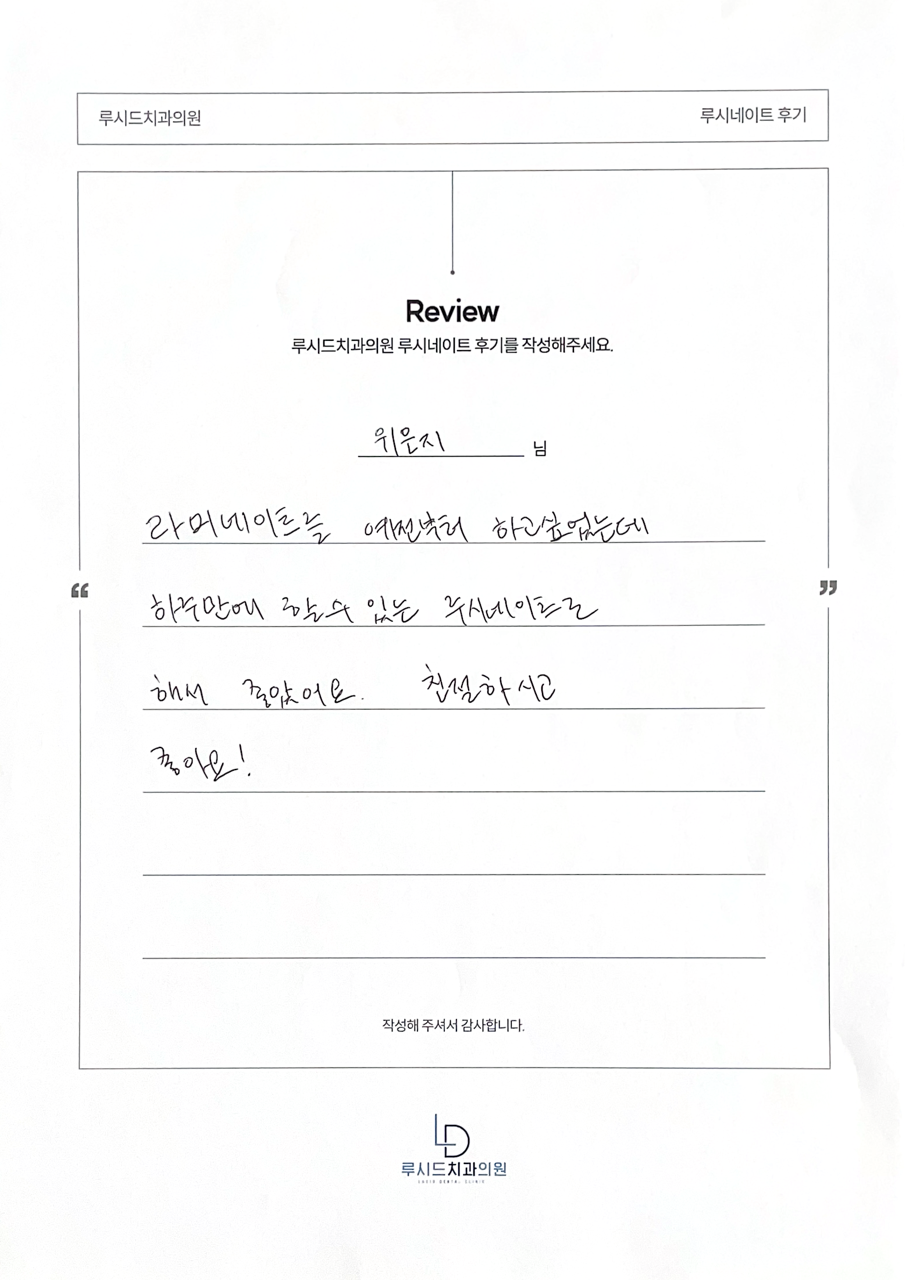 루시드치과의원
루시네이트 후기
Review
루시드치과의원 루시네이트 후기를 작성해주세요.
위은지 님
라미네이트를 예전부터 하고싶었는데
“
”
하루만에 할수 있는 루시네이트로
해서 좋았어요. 친절하시고
좋아요!
작성해 주셔서 감사합니다.
LD
루시드치과의원
LUCID DENTAL CLINIC